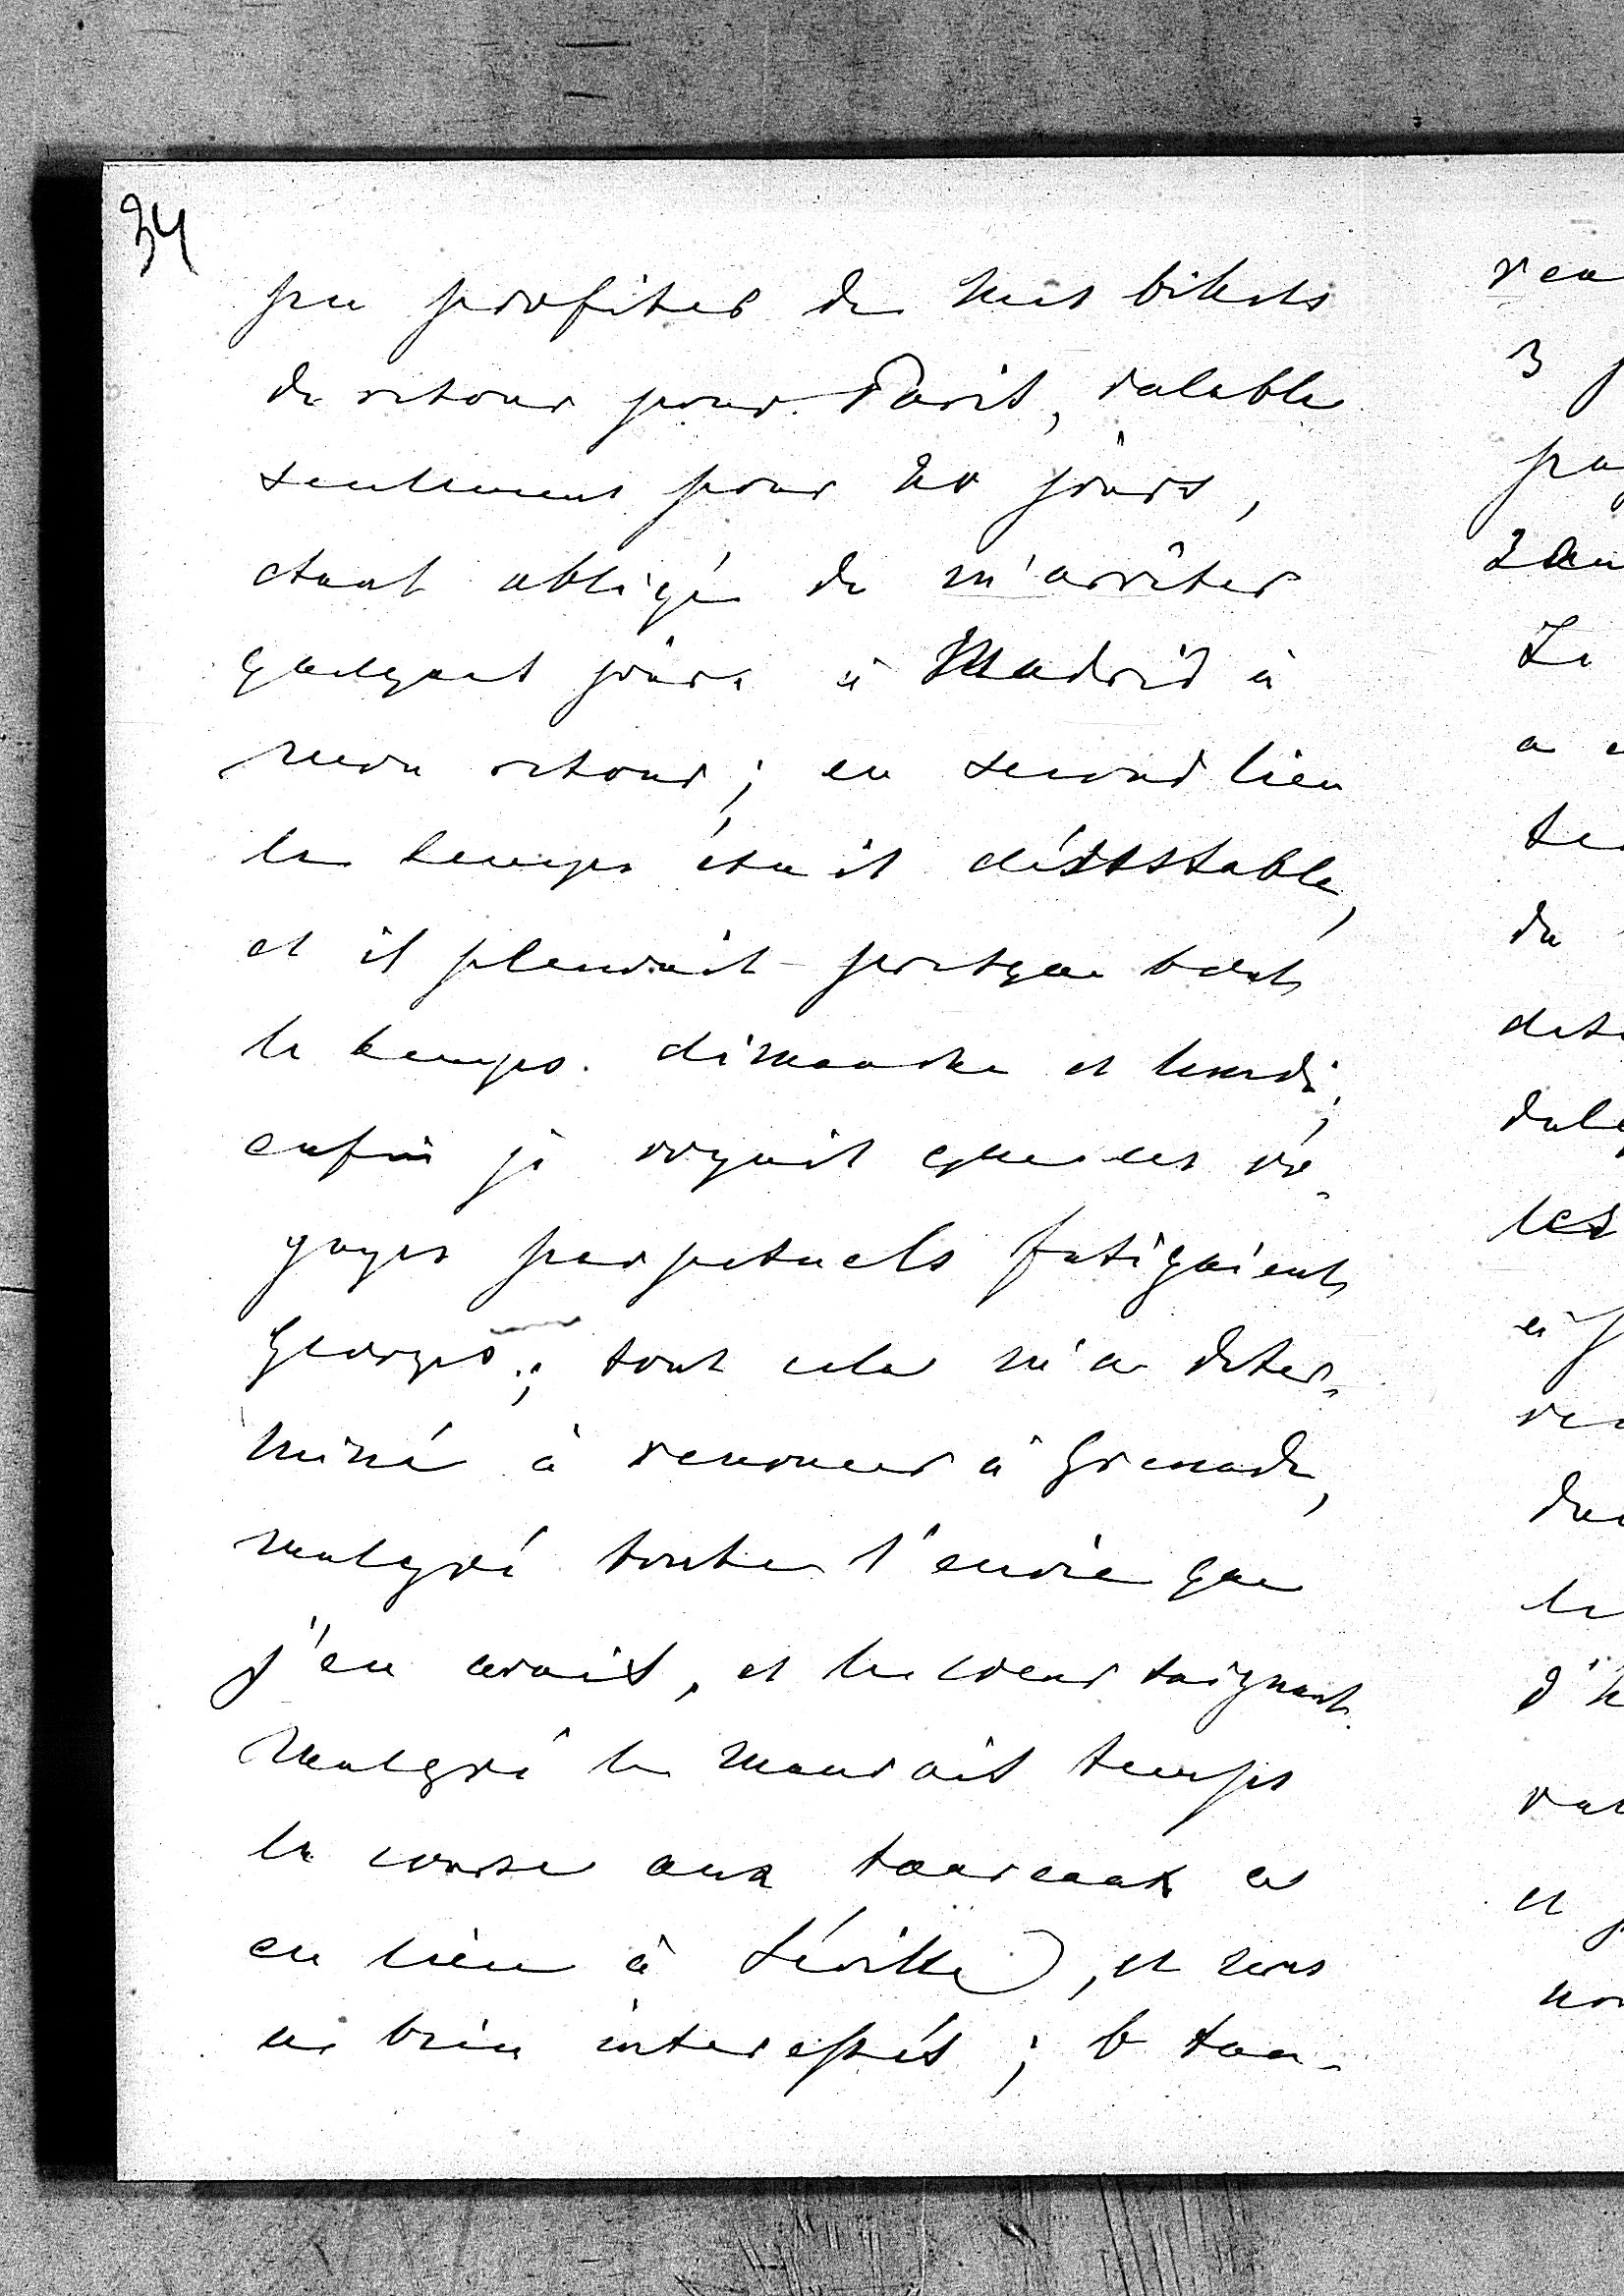 34
pu profiter de mes billets
de retour pour Paris, valable
seulement pour 20 jours,
étant obligé de m'arrêter
quelques jours à Madrid à
mon retour; en second lieu
le temps était détestable,
et il pleuvait presque tout
le temps dimanche et lundi;
enfin je voyais que ces vo-
yages perpetuels fatiguaient
Georges; tout cela m'a deter-
miné à renoncer à Grenade,
malgré toute l'envie que
j'en avais, et le cœur saignant.
Malgré le mauvais temps
la course aux taureaux a
eu lieu à Séville, et nous
a bien interessés; 6 tau-